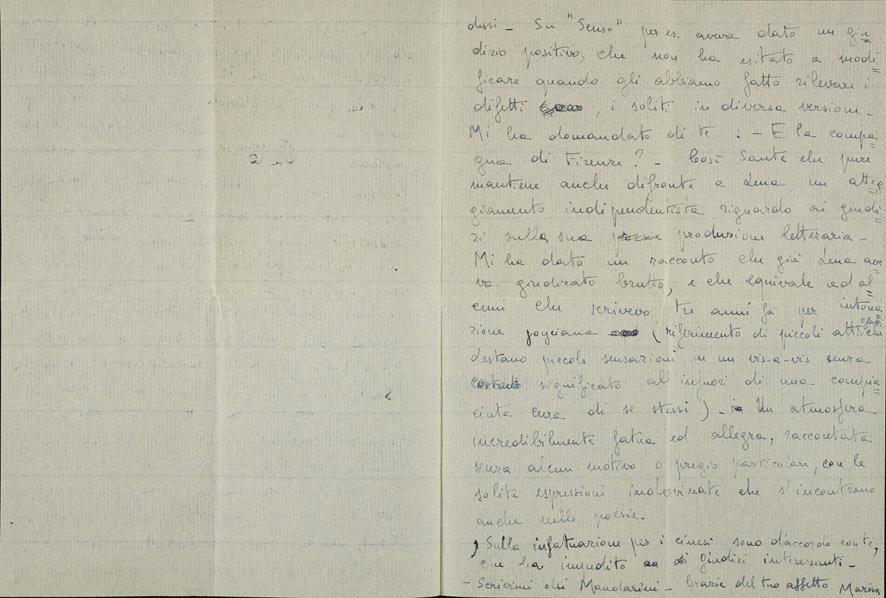 dersi - Su "Senso" per es. aveva dato un giu
dizio positivo, che non ha esitato a modi
ficare quando gli abbiamo fatto rilevare i
difetti , i soliti in diversa versione -
Mi ha domandato di te : - E la compa
gna di Firenze? - Così Sante che pure
mantiene anche difronte a Lena un atteg
giamento indipendentista riguardo ai giudi
zi sulla sua poesie produzione letteraria -
Mi ha dato un racconto che già Lena ave
va giudicato brutto, e che equivale ad al
cuni che scrivevo tre anni fa per intona
zione joyciana (riferimento di piccoli atti che
destano piccole sensazioni in un vis-a-vis senza
significato al infuori di una compia
ciuta cura di se stessi) - Un atmosfera
incredibilmente fatua ed allegra, raccontata
senza alcun motivo o pregio particolare, con le
solite espressioni indovinate che s'incontrano
anche nelle poesie -
Sulla infatuazione per i cinesi sono d'accordo con te,
che ha impedito giudizi interessanti -
- Scrivimi dei Mandarini - Grazie del tuo affetto Marisa